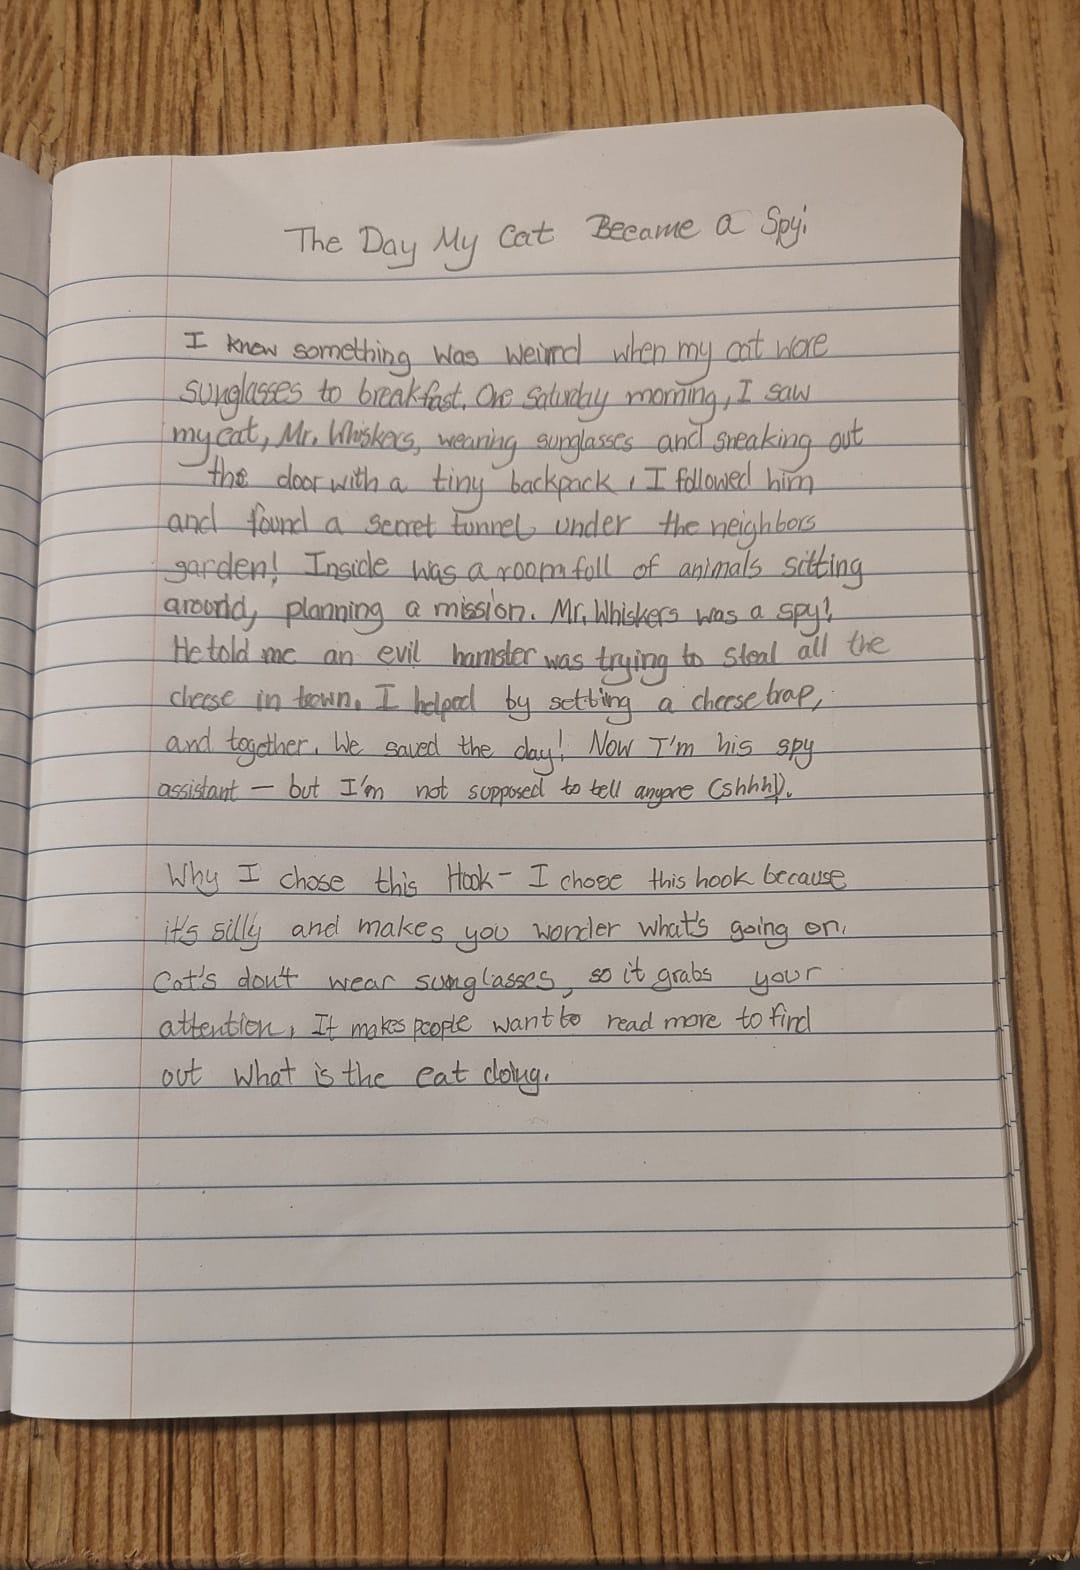 The Day My Cat Became a Spy!
I knew something was weird when my cat wore
sunglasses to breakfast. One Saturday morning, I saw
my cat, Mr. Whiskers, wearing sunglasses and sneaking out
the door with a tiny backpack, I followed him
and found a secret tunnel under the neighbors
garden! Inside was a room foll of animals sitting
around, planning a mission. Mr. Whiskers was a spy!
He told me an evil hamster was trying to steal all the
cheese in town. I helped by setting a cheese trap,
and together. We saved the day! Now I'm his spy
assistant — but I'm not supposed to tell anyone (shhh!).
Why I chose this Hook - I chose this hook because
it's silly and makes you wonder what's going on.
Cat's don't wear sunglasses, so it grabs your
attention, It makes people want to read more to find
out what is the cat doing.